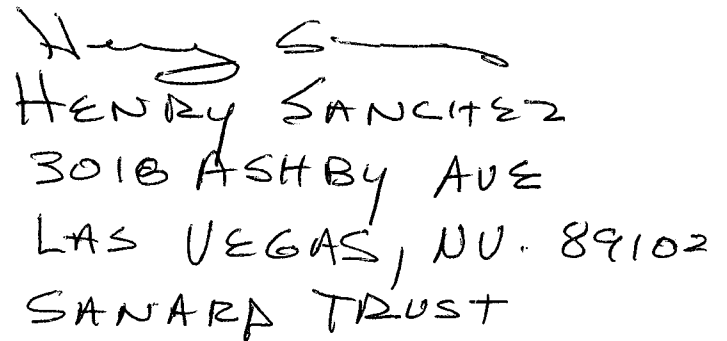 Henry S
HENRY SANCHEZ
3018 ASHBY AVE
LAS VEGAS, NV. 89102
SANARD TRUST